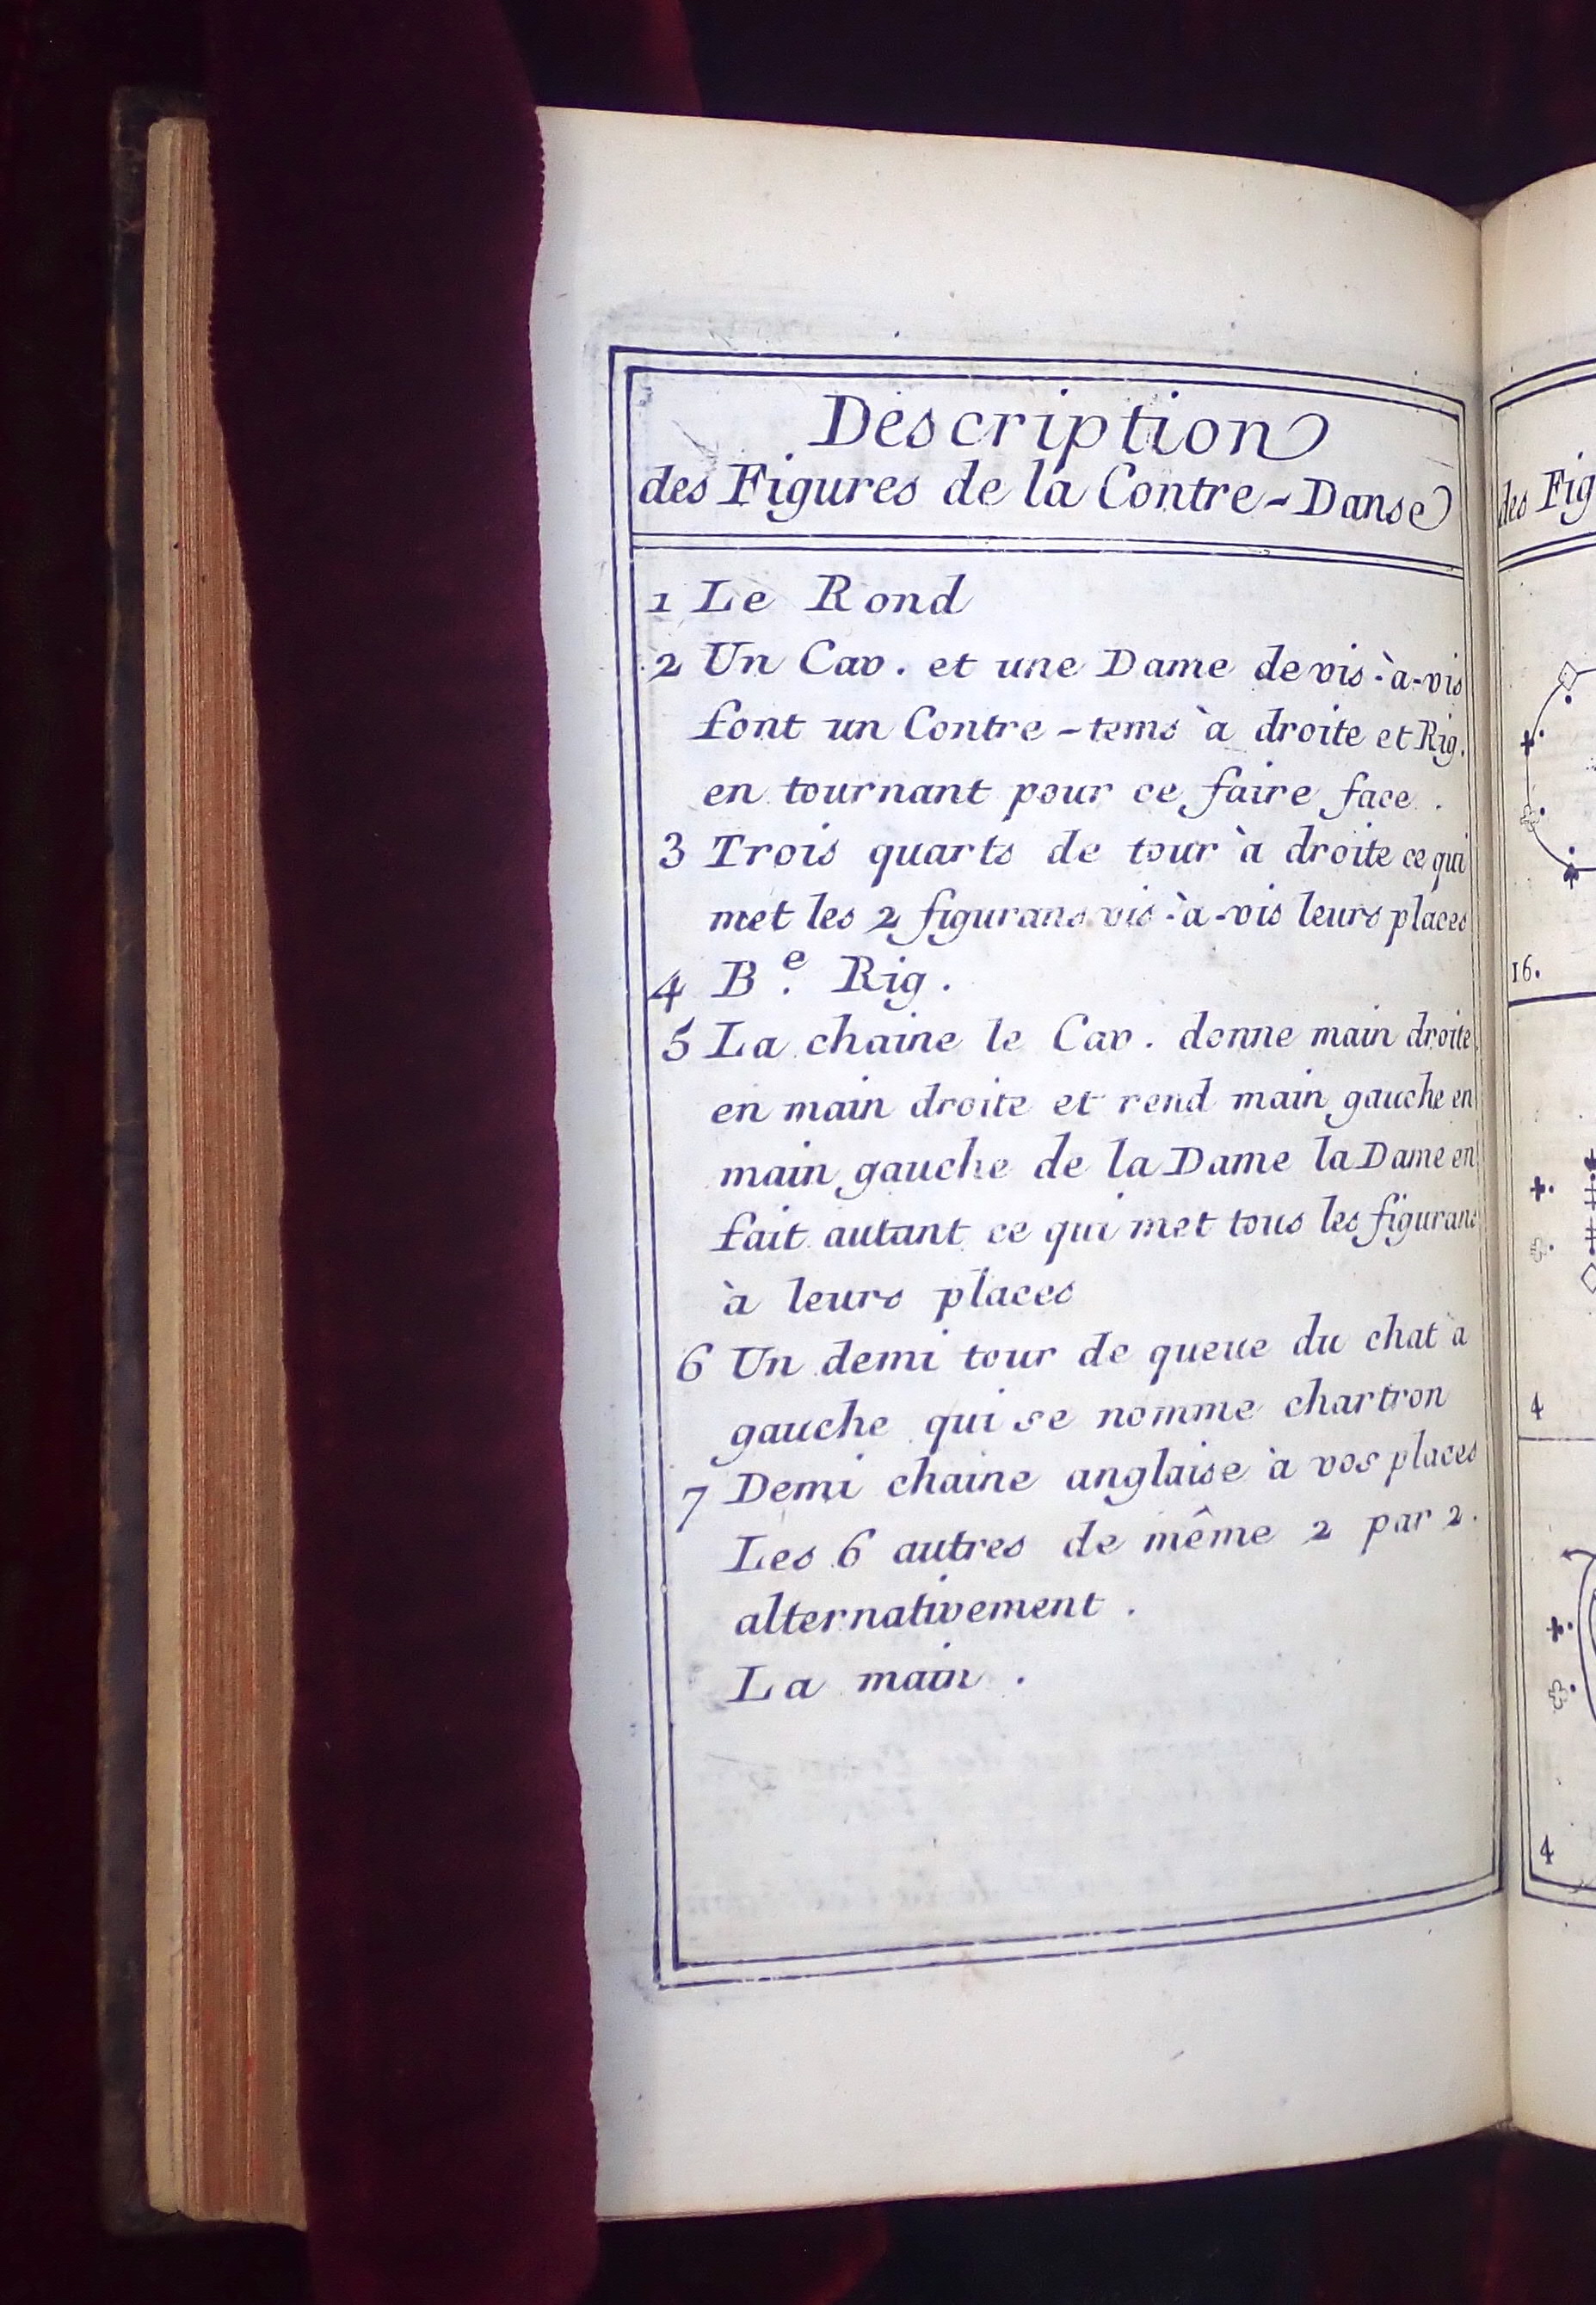 Description
des Figures de la Contre-Danse
1 Le Rond
2 Un Cav. et une Dame de vis-à-vis
font un Contre-tems à droite et Rig.
en tournant pour ce faire face.
3 Trois quarts de tour à droite ce qui
met les 2 figurans vis-à-vis leurs places
4 B.e Rig.
5 La chaine le Cav. donne main droite
en main droite et rend main gauche en
main gauche de la Dame la Dame en
fait autant ce qui met tous les figurans
à leurs places
6 Un demi tour de queue du chat à
gauche qui se nomme chartron
7 Demi chaine anglaise à vos places
Les 6 autres de même 2 par 2.
alternativement.
La main.
des Fig
16.
4
4